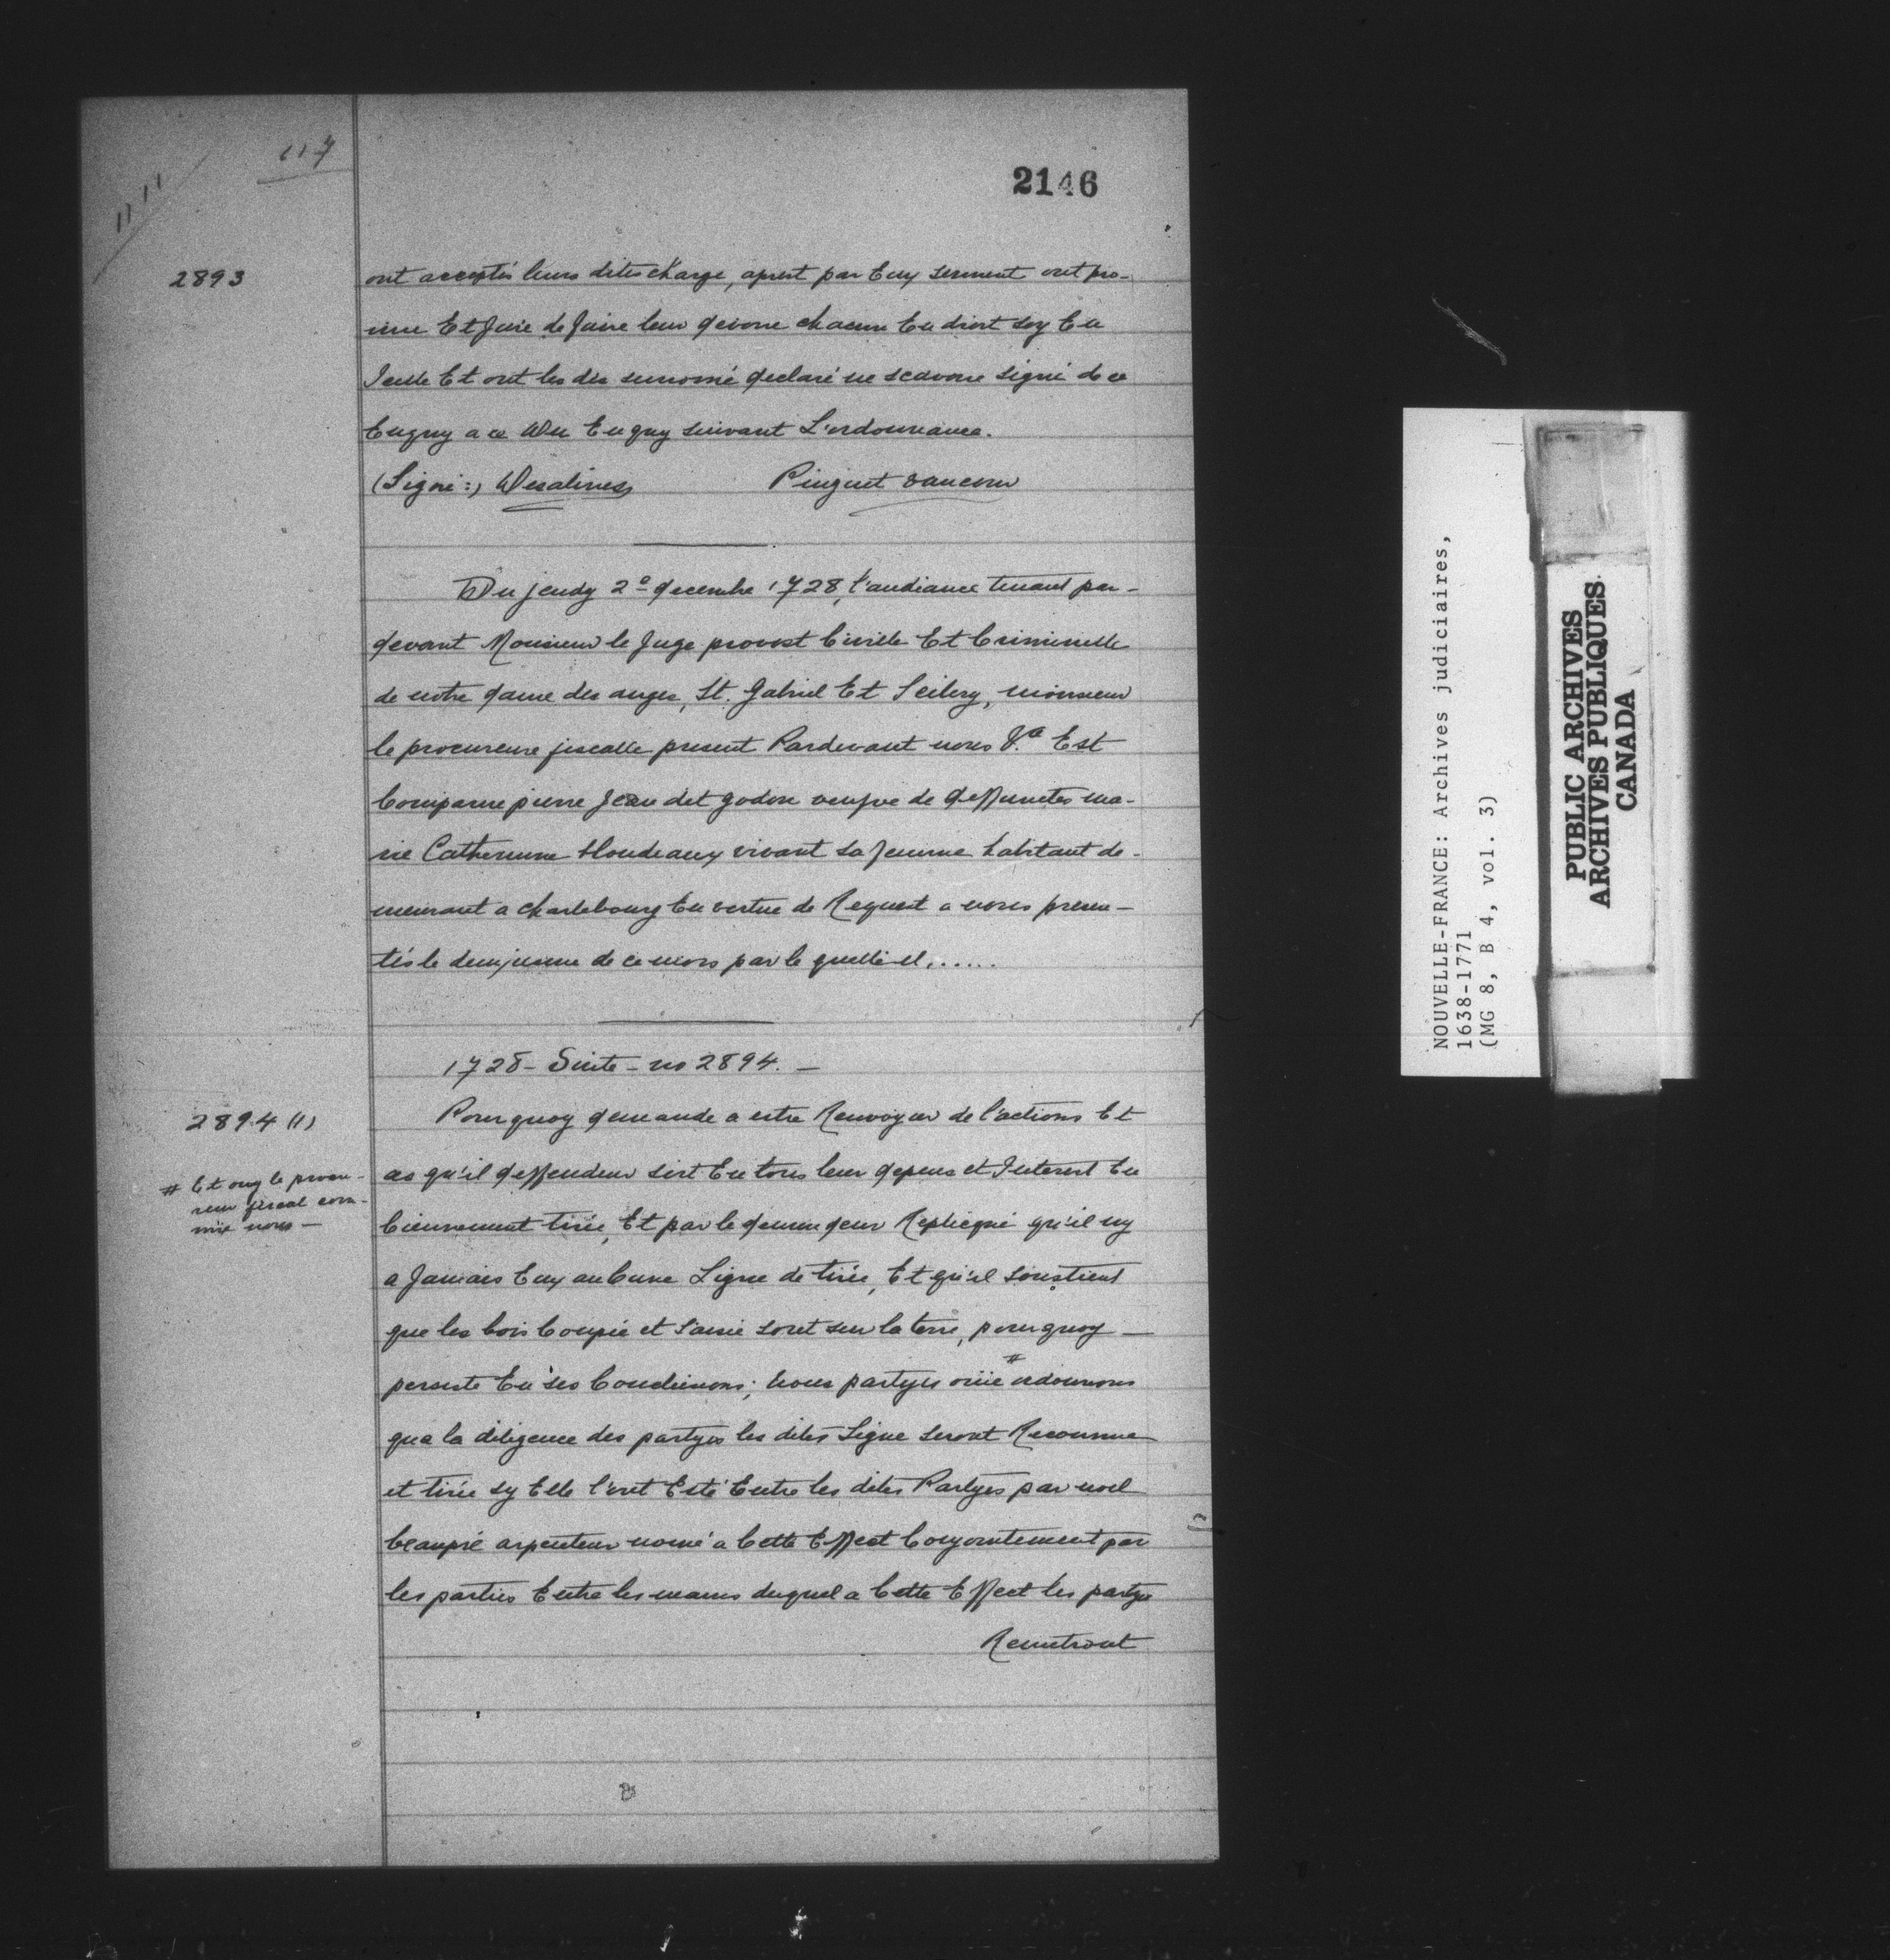 117
1111
2146
2893
ont acceptés leurs dites charge, aprest par Eux serment ont pro-
mue Et Jure de faire leur devoire chacun En droit soy En
Icelle Et ont les dis surnomé declaré ne scavoire signé de ce
Enquy a ce Deu Enquy suivant L'ordonnance.
(Signé:) Desalines Pinguet Vaucour
Du jeudy 2e decembre 1728, l'audiance tenant par-
devant Monsieur le Juge provost Civille Et Criminelle
de notre dame des anges, St. Gabriel Et Scilery, monsieur
le procureure fiscalle present Pardevant nous Est
Comparue pierre Jean dit godon veufve de deffunctes ma-
rie Catherinne Houdeaux vivant sa femme habitant de-
meurant a charlebourg En vertue de Request a nous presen-
tés le deuxjeme de ce mois par le quelle il......
1728 - Suite - no 2894. -
2894 (1)
Pourquoy demande a estre Renvoyer de l'actions Et
as qu'il deffendeur sirt En tous leur depens et Interest En
Ciennement tirée, Et par le demendeur Replicqué qu'il ny
a Jamais Eux auCune Ligne de tirée, Et qu'il soustient
que les bois Coupée et l'aisié soret sur la terre, pourquoy -
persiste En ses Conclusions; Nous partyes oüie # ordonnons
# Et ouy le procu-
reur fiscal com-
mis nous -
qua la diligence des partyes les dites Ligne seront Reconnue
et tirée sy Elle l'ont Esté Entre les dites Partyes par noel
beaupré arpenteur nomé a Cette Effect Conjointement par
les parties Entre les mains duquel a Cette Effect les partyes
Remetront
NOUVELLE-FRANCE: Archives judiciaires,
1638-1771
(MG 8, B 4, vol. 3)
PUBLIC ARCHIVES
ARCHIVES PUBLIQUES
CANADA